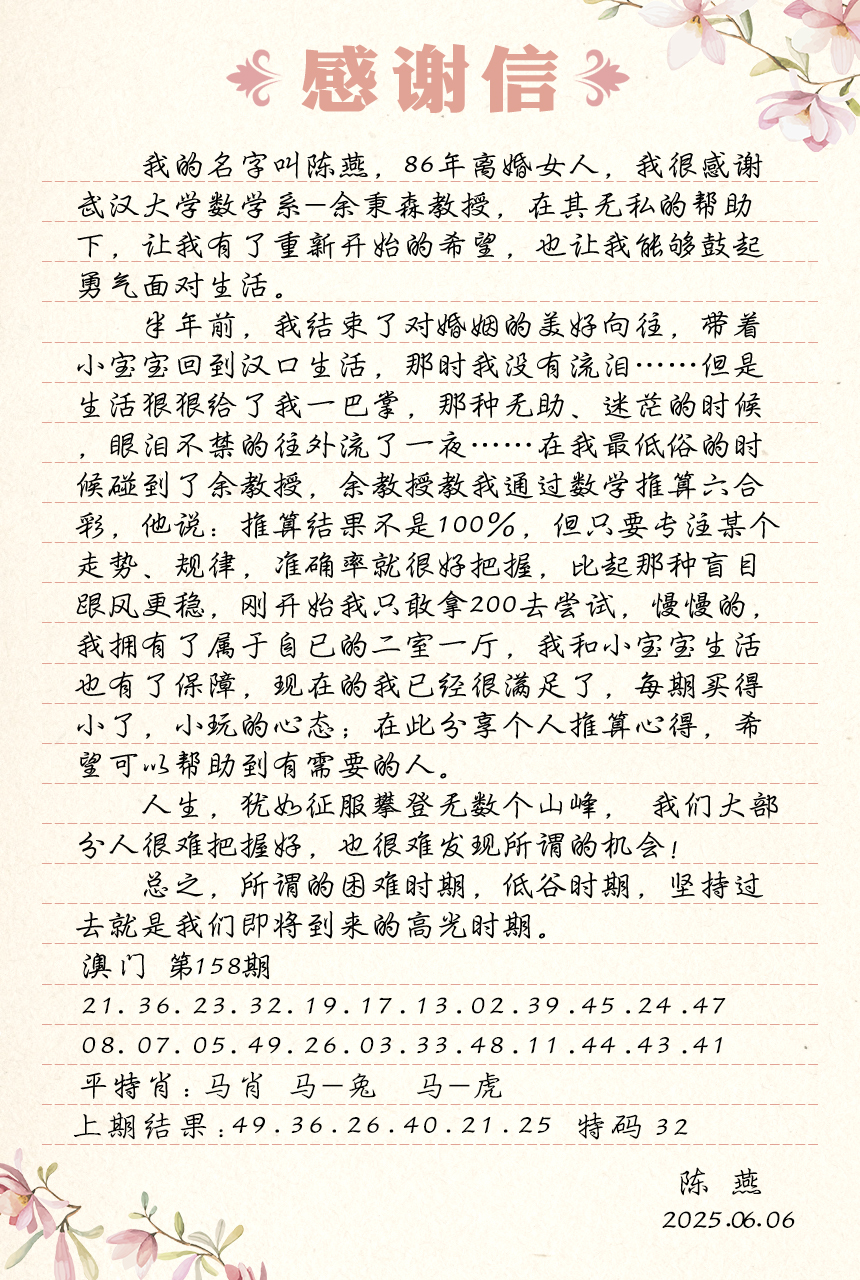 感谢信
我的名字叫陈燕，86年离婚女人，我很感谢
武汉大学数学系—余秉森教授，在其无私的帮助
下，让我有了重新开始的希望，也让我能够鼓起
勇气面对生活。
半年前，我结束了对婚姻的美好向往，带着
小宝宝回到汉口生活，那时我没有流泪……但是
生活狠狠给了我一巴掌，那种无助、迷茫的时候
，眼泪不禁的往外流了一夜……在我最低俗的时
候碰到了余教授，余教授教我通过数学推算六合
彩，他说：推算结果不是100%，但只要专注某个
走势、规律，准确率就很好把握，比起那种盲目
跟风更稳，刚开始我只敢拿200去尝试，慢慢的，
我拥有了属于自己的二室一厅，我和小宝宝生活
也有了保障，现在的我已经很满足了，每期买得
小了，小玩的心态；在此分享个人推算心得，希
望可以帮助到有需要的人。
人生，犹如征服攀登无数个山峰， 我们大部
分人很难把握好，也很难发现所谓的机会！
总之，所谓的困难时期，低谷时期，坚持过
去就是我们即将到来的高光时期。
澳门 第158期
21.36.23.32.19.17.13.02.39.45.24.47
08.07.05.49.26.03.33.48.11.44.43.41
平特肖：马肖 马—兔 马—虎
上期结果：49.36.26.40.21.25 特码 32
陈 燕
2025.06.06